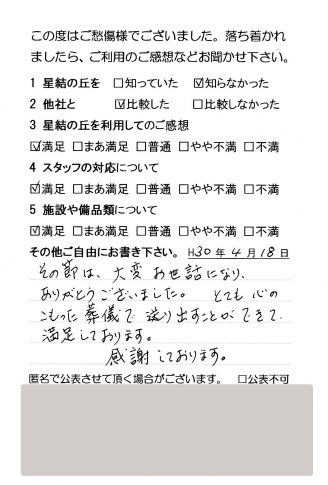 この度はご愁傷様でございました。落ち着かれ
ましたら、ご利用のご感想などお聞かせ下さい。
1 星結の丘を □知っていた ☑知らなかった
2 他社と ☑比較した □比較しなかった
3 星結の丘を利用してのご感想
☑満足 □まあ満足 □普通 □やや不満 □不満
4 スタッフの対応について
☑満足 □まあ満足 □普通 □やや不満 □不満
5 施設や備品類について
☑満足 □まあ満足 □普通 □やや不満 □不満
その他ご自由にお書き下さい。 H30年4月18日
その節は、大変お世話になり、
ありがとうございました。 とても心の
こもった葬儀で送り出すことができて、
満足しております。
感謝しております。
匿名で公表させて頂く場合がございます。 □公表不可